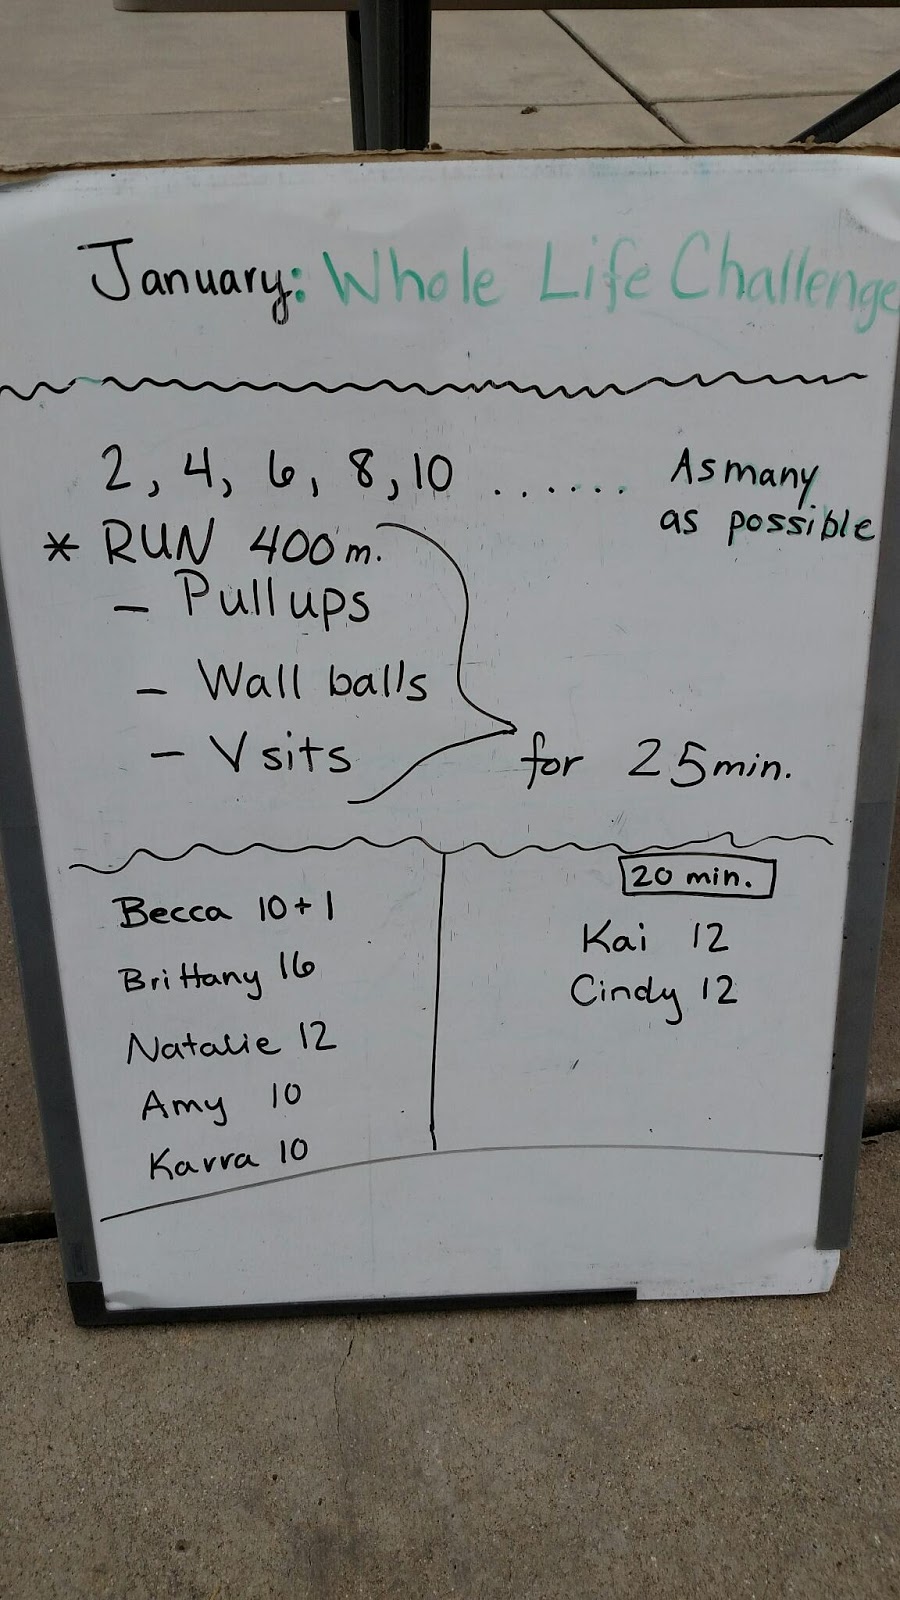 January: Whole Life Challenge
2, 4, 6, 8, 10 ...... As many
as possible
* RUN 400 m.
- Pull ups
- Wall balls
- V sits
for 25 min.
Becca 10 + 1
Brittany 16
Natalie 12
Amy 10
Karra 10
20 min.
Kai 12
Cindy 12